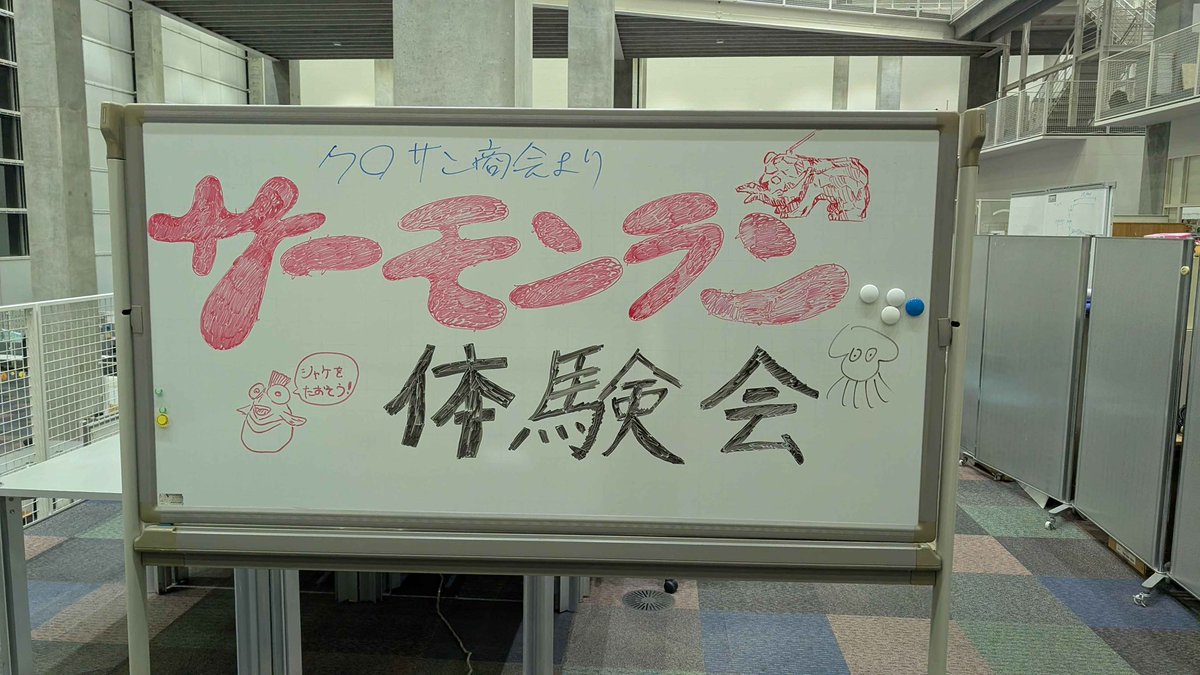 クロサン商会より
サーモンラン
シャケを
たおそう!
体験会